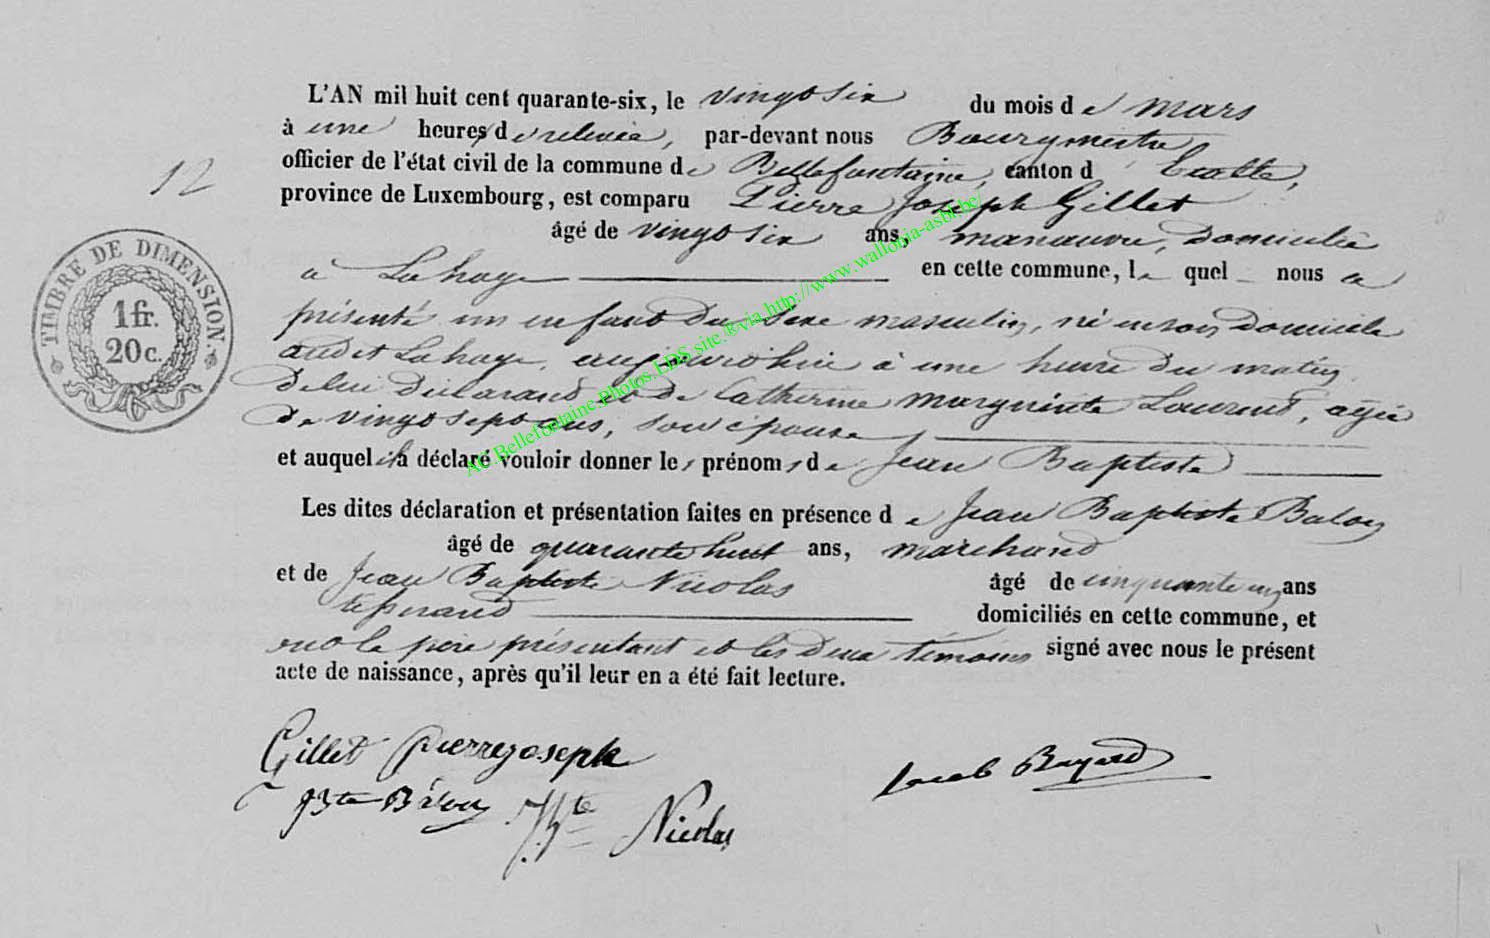 L'AN mil huit cent quarante-six, le vingt six du mois de mars
à une heures de relevée, par-devant nous Bourgmestre
officier de l'état civil de la commune de Bellefontaine, canton d'Etalle,
12
province de Luxembourg, est comparu Pierre Joseph Gillet
âgé de vingt six ans, manœuvre, domicilié
à Lahage en cette commune, le quel nous a
présenté un enfant du sexe masculin, né en son domicile
audit Lahage, aujourd'hui à une heure du matin
de lui déclarant et de Catherine Marguerite Laurent, agée
de vingt sept ans, son épouse
et auquel il a déclaré vouloir donner les prénoms de Jean Baptiste
Les dites déclaration et présentation faites en présence de Jean Baptiste
âgé de quarante huit ans, marchand
et de Jean Baptiste Nicolas âgé de cinquante un ans
tisserand domiciliés en cette commune, et
ont le père présentant et les deux témoins signé avec nous le présent
acte de naissance, après qu'il leur en a été fait lecture.
TIMBRE DE DIMENSION.
1 fr.
20 c.
Gillet pierre joseph
Jacob Bayard
Jbte Nicolas
AC.Bellefontaine.Photos.LDS site.®via http://www.wallonia-asbl.be/